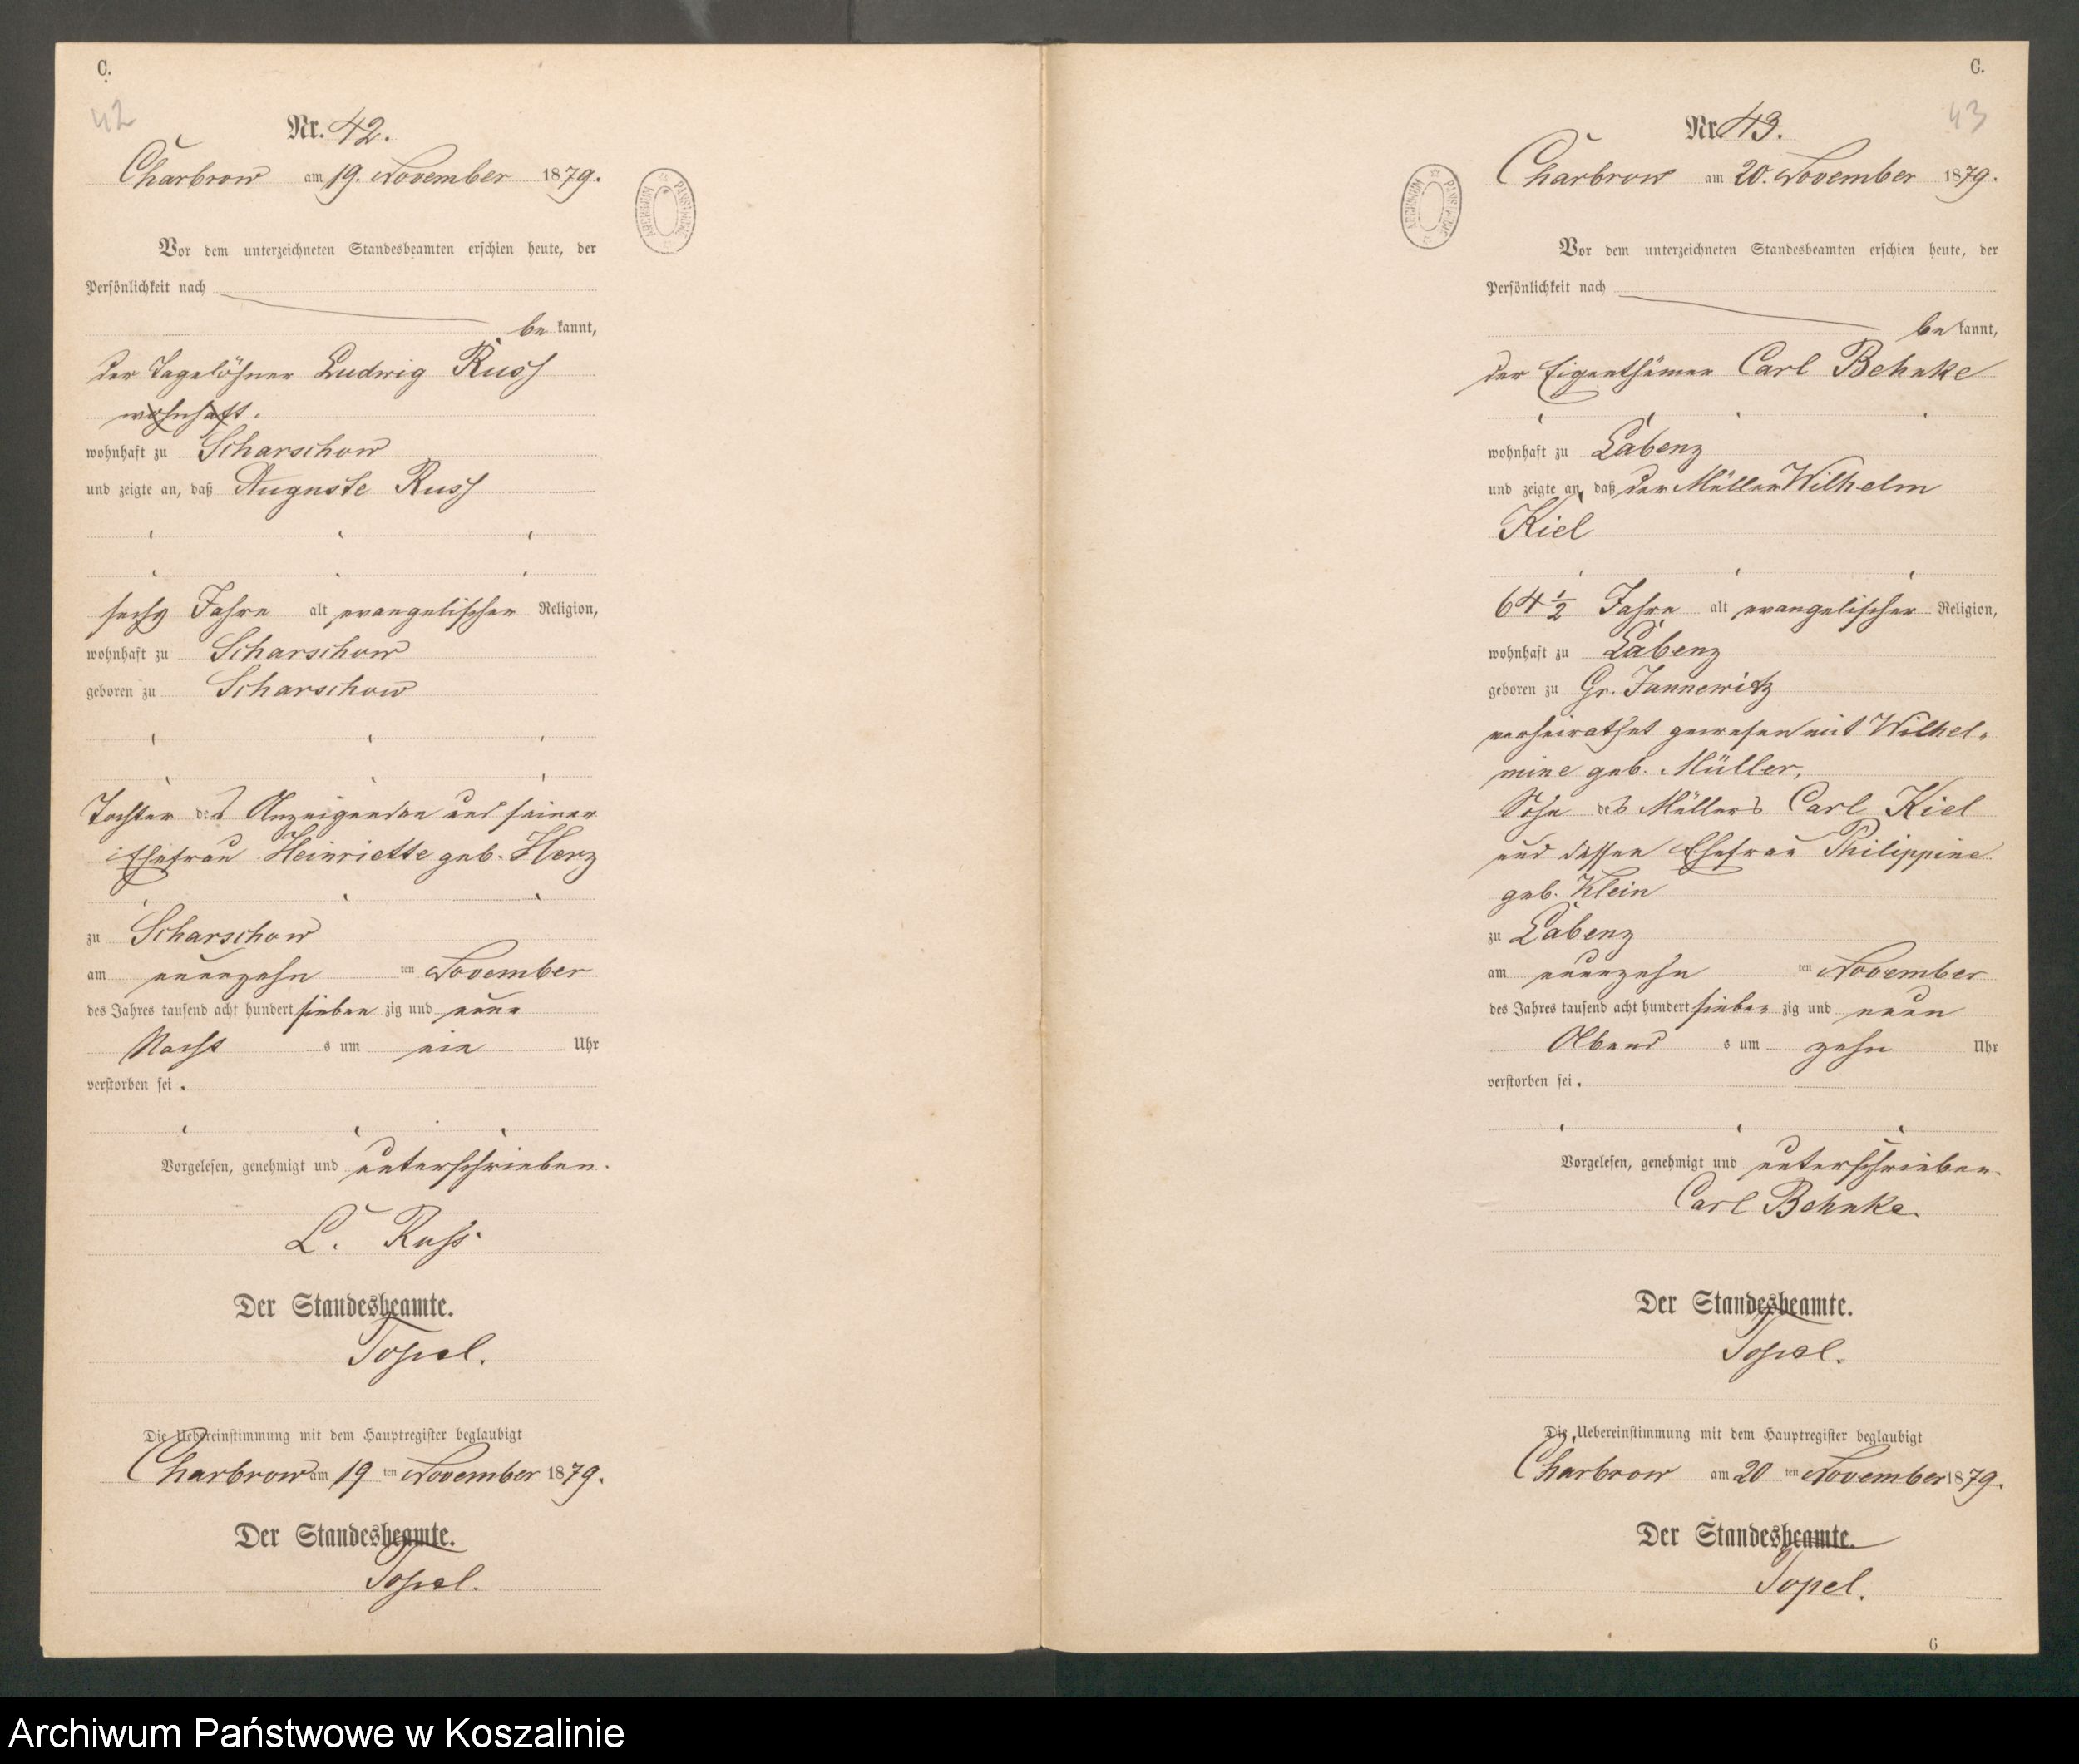 C.
42
Nr. 42.
Charbrow am 19. November 1879.
ARCHIWUM PAŃSTWOWE
Vor dem unterzeichneten Standesbeamten erschien heute, der
Persönlichkeit nach
be kannt,
der Tagelöhner Ludwig Russ
wohnhaft.
wohnhaft zu Scharschow
und zeigte an, daß Auguste Russ
sechs Jahre alt evangelischer Religion,
wohnhaft zu Scharschow
geboren zu Scharschow
Tochter des Anzeigenden und seiner
Ehefrau Heinriette geb. Herz
zu Scharschow
am neunzehn ten November
des Jahres tausend acht hundert sieben zig und neun
Nacht s um ein Uhr
verstorben sei.
Vorgelesen, genehmigt und unterschrieben.
L. Russ.
Der Standesbeamte.
Topel.
Die Uebereinstimmung mit dem Hauptregister beglaubigt
Charbrow am 19 ten November 1879.
Der Standesbeamte.
Topel.
C.
43
Nr. 43.
Charbrow am 20. November 1879.
ARCHIWUM PAŃSTWOWE
Vor dem unterzeichneten Standesbeamten erschien heute, der
Persönlichkeit nach
be kannt,
der Eigenthümer Carl Behnke
wohnhaft zu Labenz
und zeigte an, daß der Müller Wilhelm
Kiel
64 1/2 Jahre alt evangelischer Religion,
wohnhaft zu Labenz
geboren zu Gr. Jannewitz
verheirathet gewesen mit Wilhel-
mine geb. Müller,
Sohn des Müllers Carl Kiel
und dessen Ehefrau Philippine
geb. Klein
zu Labenz
am neunzehn ten November
des Jahres tausend acht hundert sieben zig und neun
Abend s um zehn Uhr
verstorben sei.
Vorgelesen, genehmigt und unterschrieben.
Carl Behnke.
Der Standesbeamte.
Topel.
Die Uebereinstimmung mit dem Hauptregister beglaubigt
Charbrow am 20 ten November 1879.
Der Standesbeamte.
Topel.
6
Archiwum Państwowe w Koszalinie